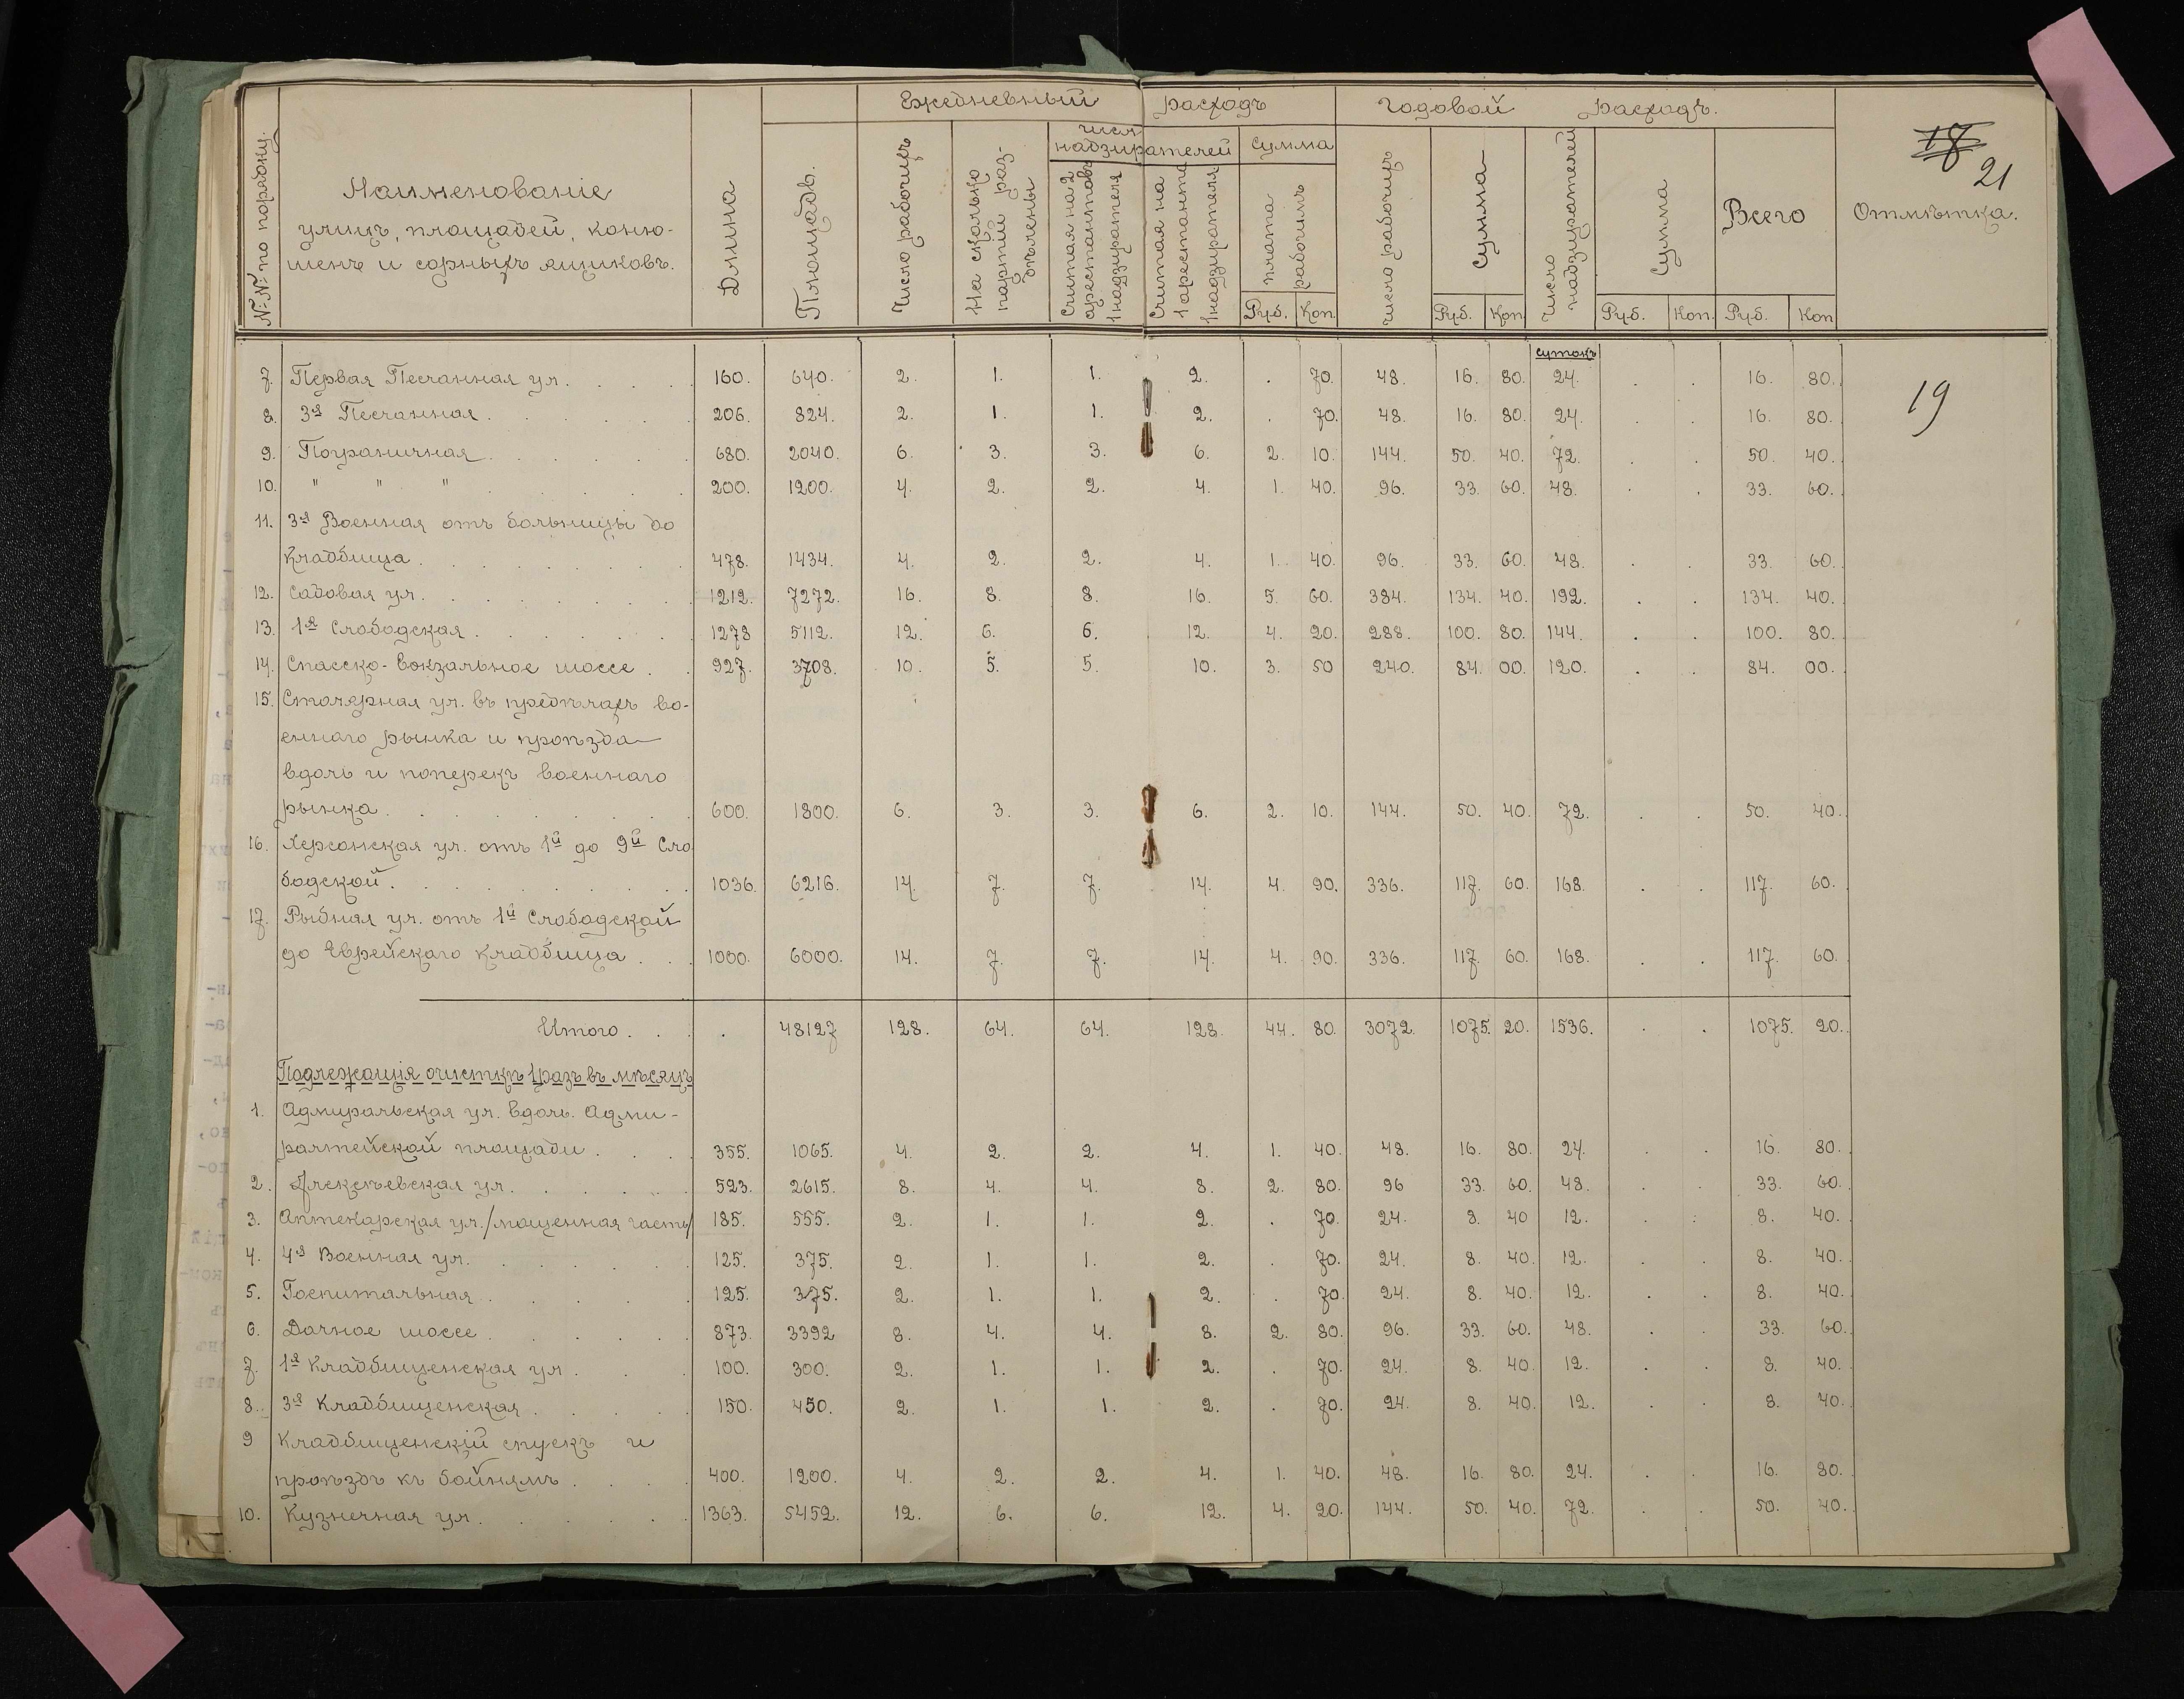 №№ по порядку.
Наименованіе
улицъ, площадей, коню-
шенъ и сорныхъ ящиковъ.
Длина
Площадь.
Ежедневный расходъ
Число рабочихъ
На сколько
партій раз-
дѣлены
числ.
надзирателей
Считая на 2
арестантовъ
1 надзирателя
Считая на
1 арестанта
1 надзирателя
Сумма
плата
рабочимъ
Руб. Коп.
Годовой расходъ.
Число рабочихъ
Сумма
Руб. Коп.
Число
надзирателей
Сумма
Руб. Коп.
Всего
Руб. Коп
18
21
Отмѣтка.
19
сутокъ
7. Первая Песчанная ул. 160. 640. 2. 1. 1. 2. . 70. 48. 16. 80. 24. . . 16. 80.
8. 3я Песчанная. 206. 824. 2. 1. 1. 2. . 70. 48. 16. 80. 24. . . 16. 80.
9. Пограничная. 680. 2040. 6. 3. 3. 6. 2. 10. 144. 50. 40. 72. . . 50. 40.
10. " " " 200. 1200. 4. 2. 2. 4. 1. 40. 96. 33. 60. 48. . . 33. 60.
11. 3я Военная отъ больницы до
кладбища. 478. 1434. 4. 2. 2. 4. 1. 40. 96. 33. 60. 48. . . 33. 60.
12. Садовая ул. 1212. 7272. 16. 8. 8. 16. 5. 60. 384. 134. 40. 192. . . 134. 40.
13. 1я Слободская. 1278 5112. 12. 6. 6. 12. 4. 20. 288. 100. 80. 144. . . 100. 80.
14. Спасско-вокзальное шоссе. 927. 3708. 10. 5. 5. 10. 3. 50 240. 84. 00. 120. . . 84. 00.
15. Столярная ул. въ предѣлахъ во-
еннаго рынка и проѣзда
вдоль и поперекъ военнаго
рынка. 600. 1800. 6. 3. 3. 6. 2. 10. 144. 50. 40. 72. . . 50. 40.
16. Херсонская ул. отъ 1й до 9й Сло
бодской. 1036. 6216. 14. 7. 7. 14. 4. 90. 336. 117. 60. 168. . . 117. 60.
17. Рыбная ул. отъ 1й Слободской
до Еврейскаго кладбища. 1000. 6000. 14. 7. 7. 14. 4. 90. 336. 117. 60. 168. . . 117. 60.
Итого. . . 48127 128. 64. 64. 128. 44. 80. 3072. 1075. 20. 1536. . . 1075. 20.
Подлежащія очисткѣ 1 разъ въ мѣсяцъ
1. Адмиральская ул. вдоль. Адми-
ралтейской площади. 355. 1065. 4. 2. 2. 4. 1. 40. 48. 16. 80. 24. . . 16. 80.
2. Алексѣевская ул. 523. 2615. 8. 4. 4. 8. 2. 80. 96 33. 60. 48. . . 33. 60.
3. Аптекарская ул./мощенная часть/ 185. 555. 2. 1. 1. 2. . 70. 24. 8. 40 12. . . 8. 40.
4. 4я Военная ул. 125. 375. 2. 1. 1. 2. . 70. 24. 8. 40. 12. . . 8. 40.
5. Госпитальная. 125. 375. 2. 1. 1. 2. . 70. 24. 8. 40. 12. . . 8. 40.
6. Дачное шоссе. 873. 3392 8. 4. 4. 8. 2. 80. 96. 33. 60. 48. . . 33. 60.
7. 1я Кладбищенская ул. 100. 300. 2. 1. 1. 2. . 70. 24. 8. 40. 12. . . 8. 40.
8. 3я Кладбищенская. 150. 450. 2. 1. 1. 2. . 70. 24. 8. 40. 12. . . 8. 40.
9 Кладбищенскій спускъ и
проѣздъ къ бойнямъ. 400. 1200. 4. 2. 2. 4. 1. 40. 48. 16. 80. 24. . . 16. 80.
10. Кузнечная ул. 1363. 5452. 12. 6. 6. 12. 4. 20. 144. 50. 40. 72. . . 50. 40.